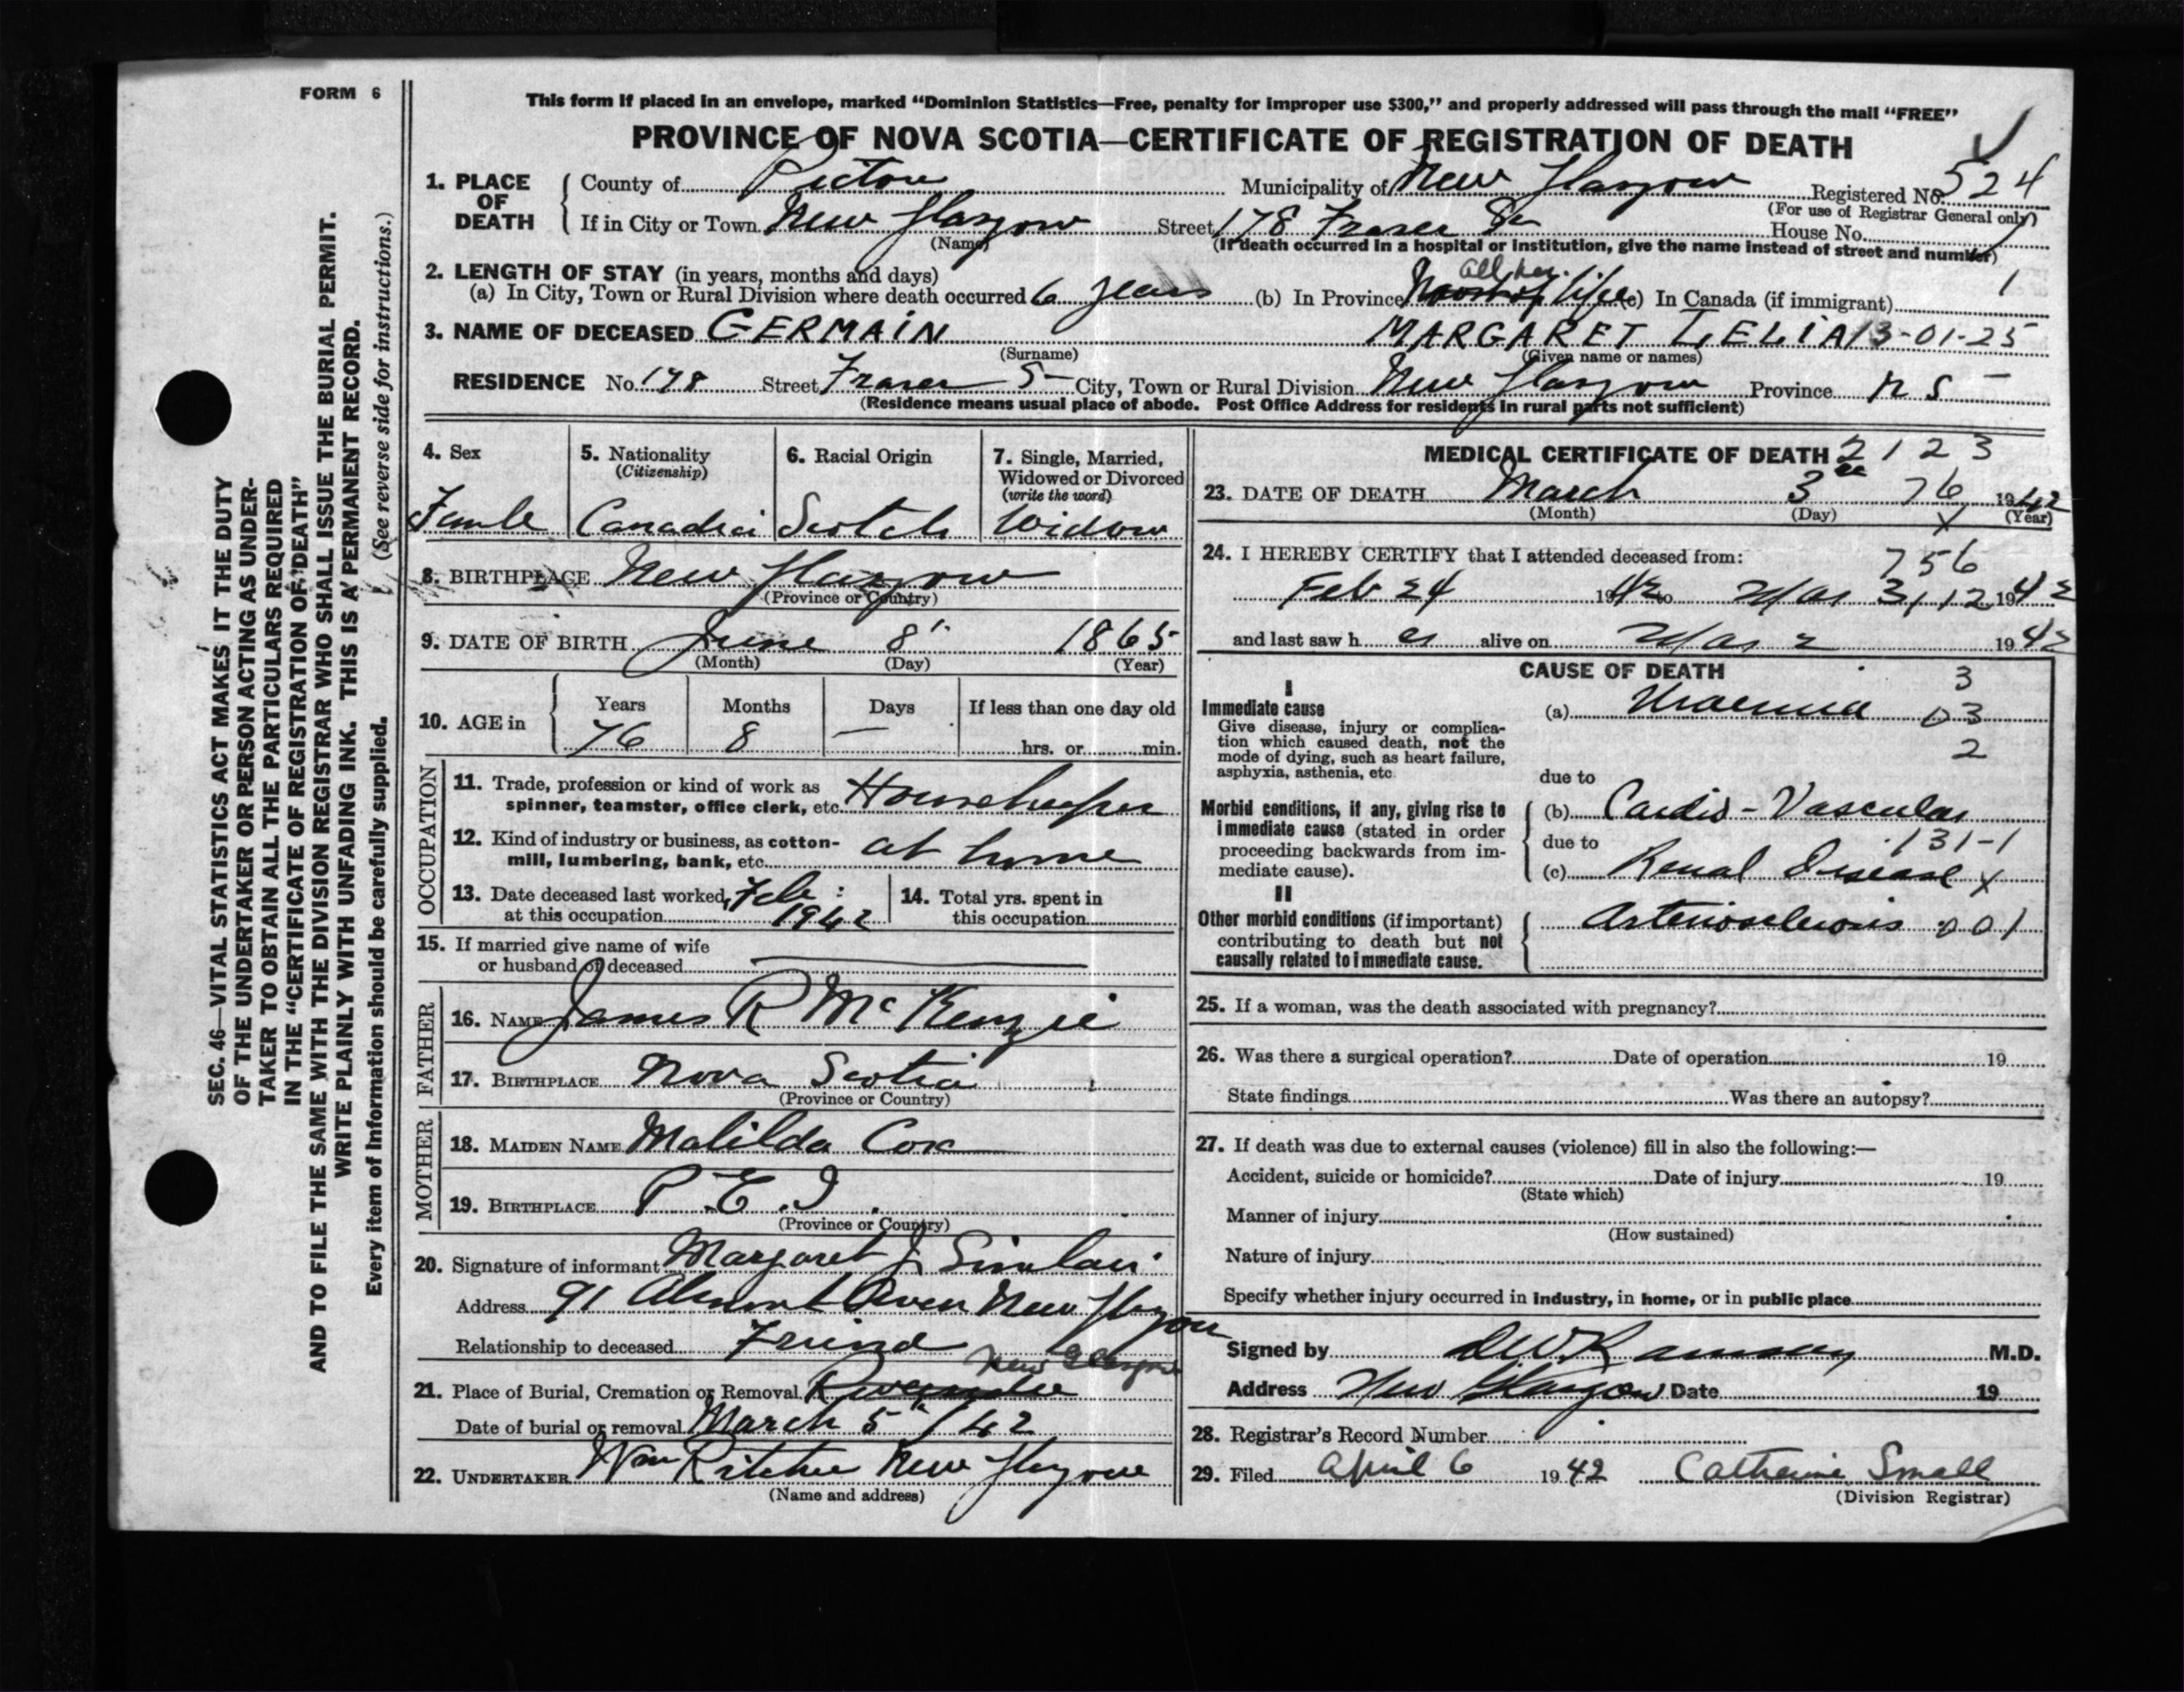 FORM 6
This form if placed in an envelope, marked “Dominion Statistics—Free, penalty for improper use $300,” and properly addressed will pass through the mail “FREE”
PROVINCE OF NOVA SCOTIA—CERTIFICATE OF REGISTRATION OF DEATH
1. PLACE OF DEATH County of Pictou Municipality of New Glasgow Registered No. 524
(For use of Registrar General only)
If in City or Town New Glasgow Street 178 Fraser St House No.
(Name) (If death occurred in a hospital or institution, give the name instead of street and number)
2. LENGTH OF STAY (in years, months and days)
(a) In City, Town or Rural Division where death occurred 6 years (b) In Province all her life (c) In Canada (if immigrant) 1
3. NAME OF DECEASED GERMAIN MARGARET LELIA 13-01-25
(Surname) (Given name or names)
RESIDENCE No. 178 Street Fraser S City, Town or Rural Division New Glasgow Province N S
(Residence means usual place of abode. Post Office Address for residents in rural parts not sufficient)
4. Sex 5. Nationality 6. Racial Origin 7. Single, Married,
(Citizenship) Widowed or Divorced
(write the word)
Female Scotch Widow
8. BIRTHPLACE New Glasgow
(Province or Country)
9. DATE OF BIRTH June 8 1865
(Month) (Day) (Year)
10. AGE in Years Months Days If less than one day old
76 8 — hrs. or min.
OCCUPATION
11. Trade, profession or kind of work as
spinner, teamster, office clerk, etc. Housekeeper
12. Kind of industry or business, as cotton-
mill, lumbering, bank, etc. at home
13. Date deceased last worked Feb: 14. Total yrs. spent in
at this occupation 1942 this occupation
15. If married give name of wife
or husband of deceased
FATHER
16. NAME James R McKenzie
17. BIRTHPLACE Nova Scotia
(Province or Country)
MOTHER
18. MAIDEN NAME Matilda Cox
19. BIRTHPLACE P.E.I.
(Province or Country)
20. Signature of informant Margaret J Sinclair
Address 91 New Glasgow
Relationship to deceased Friend
New Glasgow
21. Place of Burial, Cremation or Removal Riverside
Date of burial or removal March 5 / 42
22. UNDERTAKER Wm Ritchie New Glasgow
(Name and address)
MEDICAL CERTIFICATE OF DEATH 2 1 2 3
23. DATE OF DEATH March 3 76 1942
(Month) (Day) X (Year)
24. I HEREBY CERTIFY that I attended deceased from: 756
Feb 24 1942 to Mar 3, 12 1942
and last saw her alive on Mar 2 1942
CAUSE OF DEATH 3
I
Immediate cause (a) Uraemia 03
Give disease, injury or complica-
tion which caused death, not the 2
mode of dying, such as heart failure,
asphyxia, asthenia, etc. due to
Morbid conditions, if any, giving rise to (b) Cardio-Vascular
immediate cause (stated in order due to 131-1
proceeding backwards from im-
mediate cause). (c) Renal Disease X
II
Other morbid conditions (if important) Arteriosclerosis 001
contributing to death but not
causally related to immediate cause.
25. If a woman, was the death associated with pregnancy?
26. Was there a surgical operation? Date of operation 19
State findings Was there an autopsy?
27. If death was due to external causes (violence) fill in also the following:—
Accident, suicide or homicide? Date of injury 19
(State which)
Manner of injury
(How sustained)
Nature of injury
Specify whether injury occurred in industry, in home, or in public place
Signed by M.D.
Address New Glasgow Date 19
28. Registrar's Record Number
29. Filed April 6 1942 Catherine Small
(Division Registrar)
SEC. 46—VITAL STATISTICS ACT MAKES IT THE DUTY
OF THE UNDERTAKER OR PERSON ACTING AS UNDER-
TAKER TO OBTAIN ALL THE PARTICULARS REQUIRED
IN THE “CERTIFICATE OF REGISTRATION OF DEATH”
AND TO FILE THE SAME WITH THE DIVISION REGISTRAR WHO SHALL ISSUE THE BURIAL PERMIT.
WRITE PLAINLY WITH UNFADING INK. THIS IS A PERMANENT RECORD.
Every item of information should be carefully supplied. (See reverse side for instructions.)